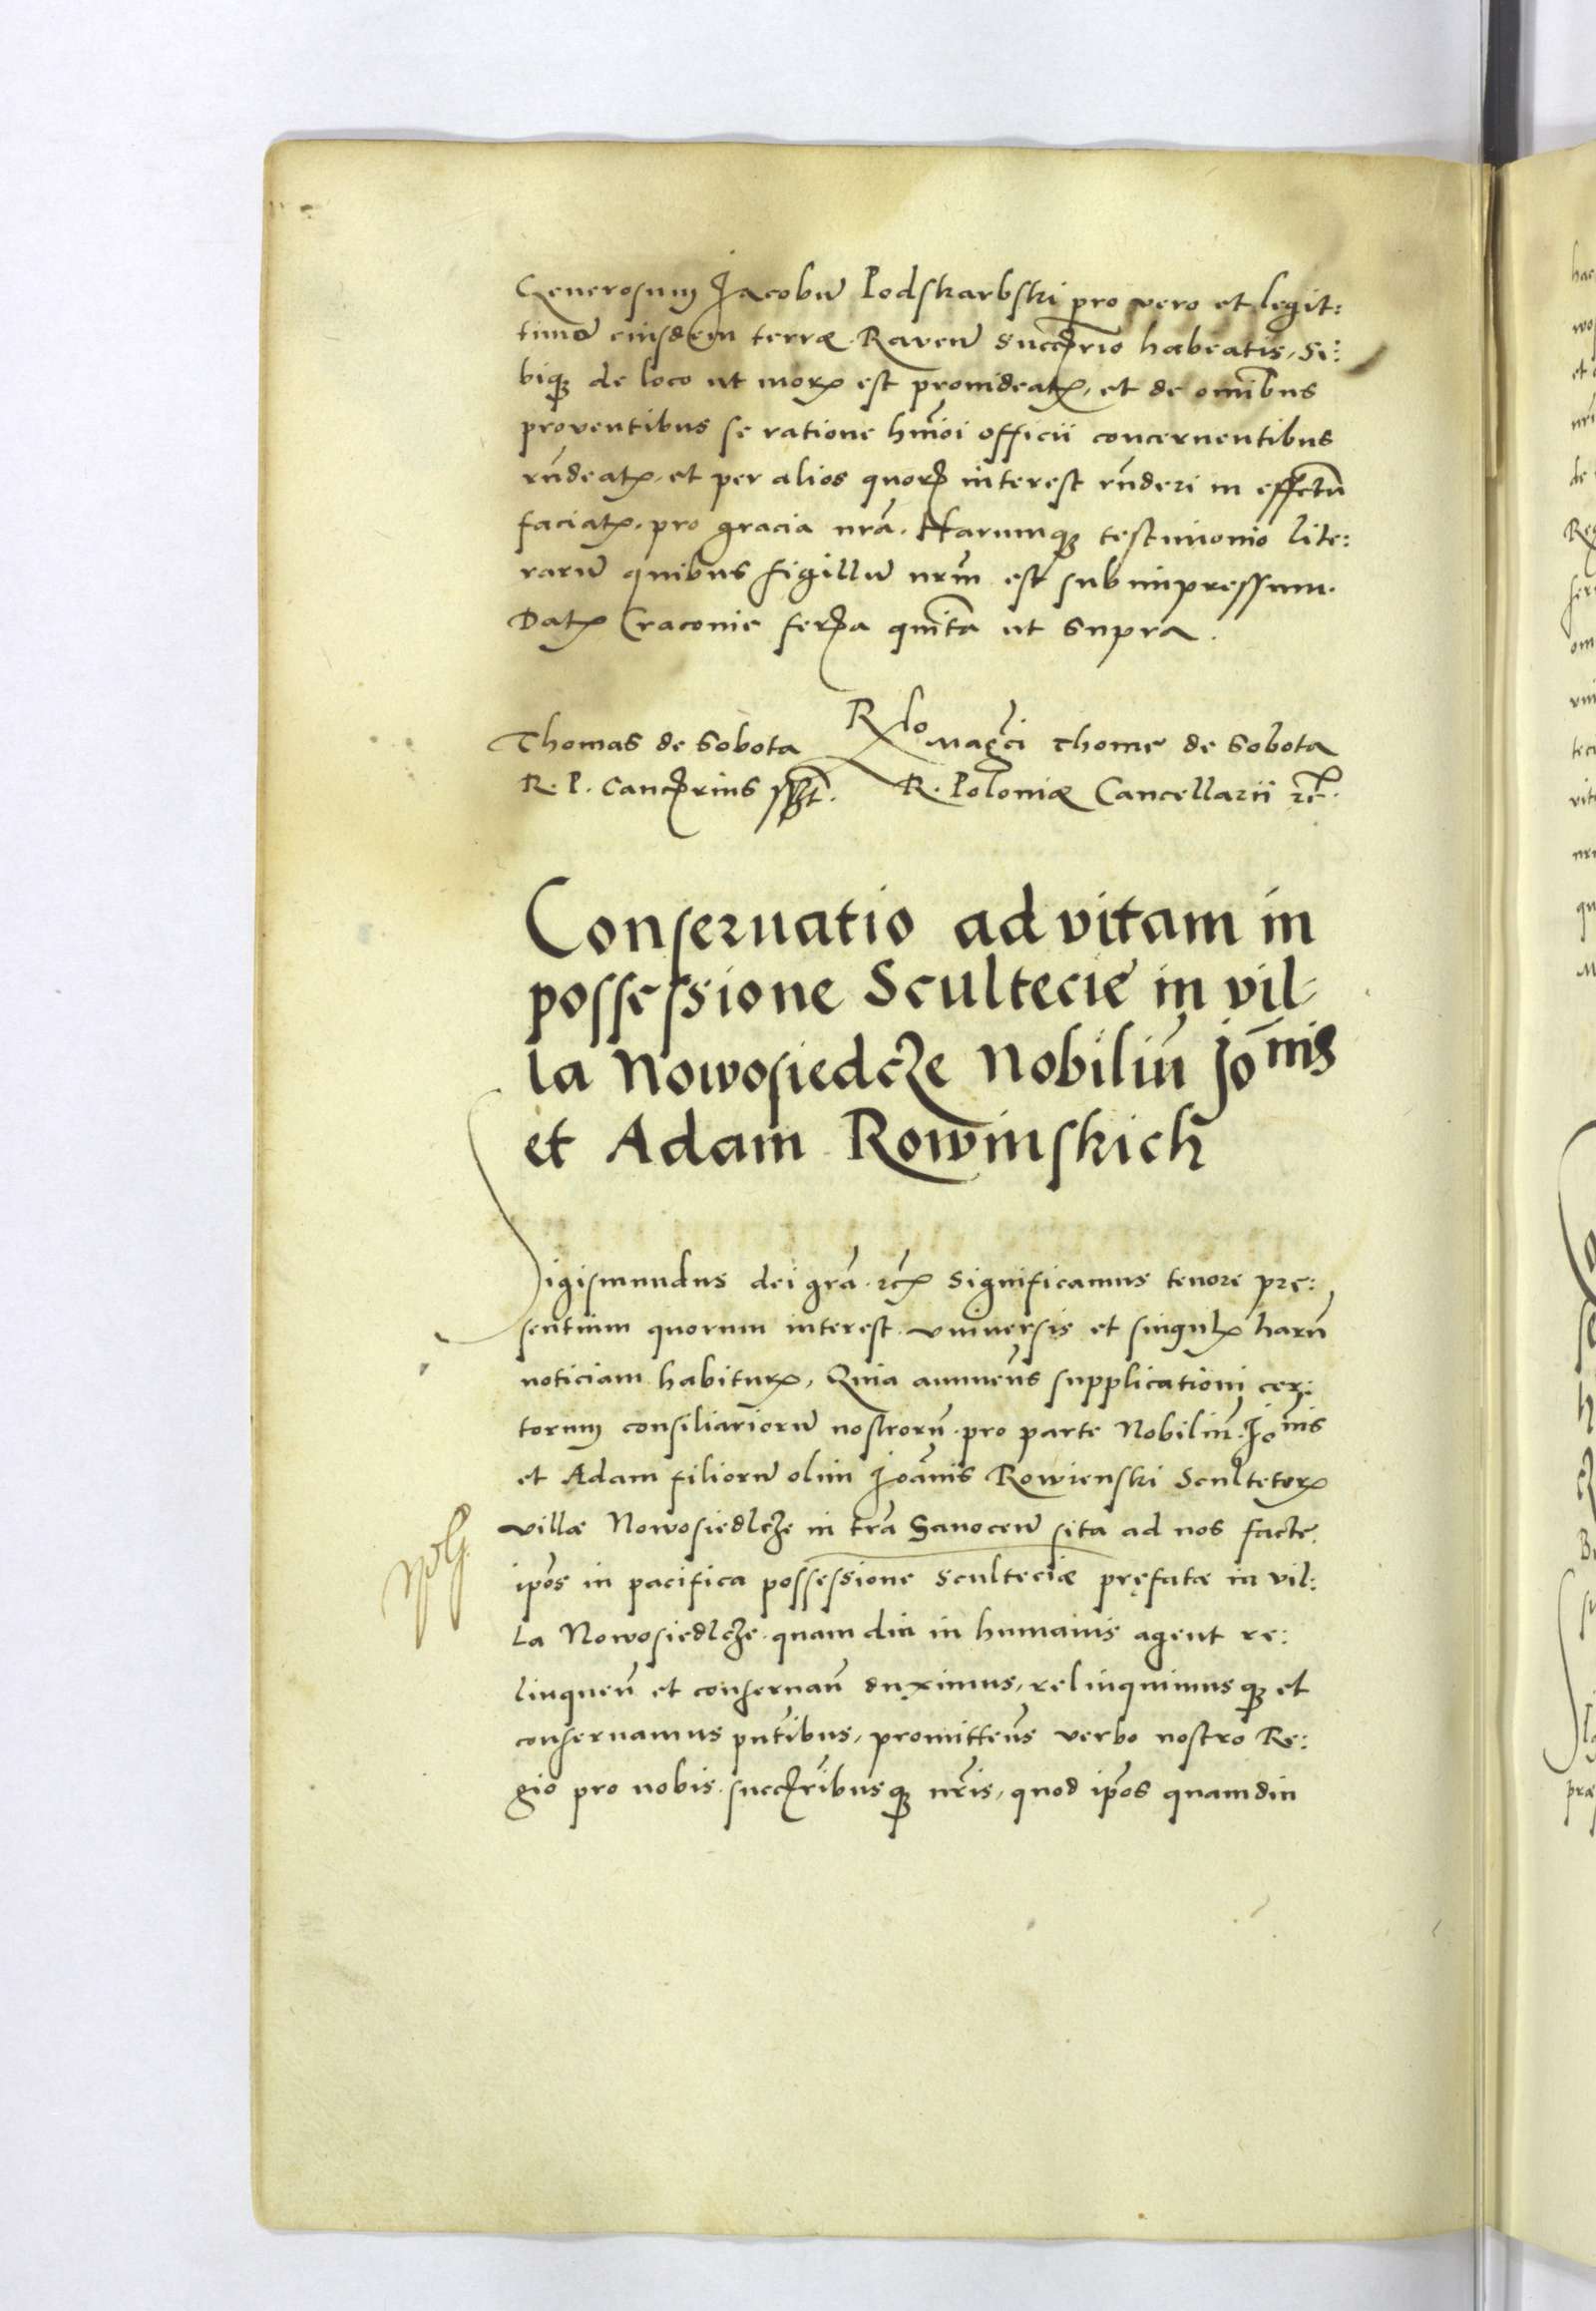 Generosum Jacobū Podskarbski pro vero et legit:
timo eiusdem terræ Raveñ succꝯrio habeatis, Si:
biqȝ de loco ut morꝭ est provideatꝭ, et de omībus
proventibus se ratione hm̄oi officii concernentibus
rn̄deatꝭ, et per alios quorꝭ interest rn̄deri in effectū
faciatꝭ, pro gracia nrā. Harumqȝ testimonio lite:
rarū quibus sigillū nrm̄ est subimpressum.
Datꝭ Cracovie feria quīta ut supra.
Thomas de Sobota
R. P. Cancꝭrius sst.
Rlo Magci Thome de Sobota
R. Poloniæ Cancellarii rc̄.
Conseruatio ad vitam in
possessione Scultecie in vil-
la Nowosiedcze Nobiliū Jōnis
et Adam Rowinskich
Sigismundus dei grā rcꝭ Significamus tenore prę:
sentium quorum interest universis et singulꝭ harū
noticiam habiturꝭ, Quia annuens̄ supplicationi cer:
torum consiliariorū nostrorū pro parte Nobiliū Jōnis
et Adam filiorū olim Joānis Rowienski Scultetorꝭ
villæ Nowosiedlcze in trā Sanoceñ sita ad nos facte
ipōs in pacifica possessione Sculteciæ pręfatæ in vil:
la Nowosiedlcze quamdiu in humanis agent re:
linqueñ et conservañ duximus, relinquimusqȝ et
conservamus pn̄tibus, promitteñs verbo nostro Re:
gio pro nobis succꝭribusqȝ nrīs, quod ipōs quamdiu